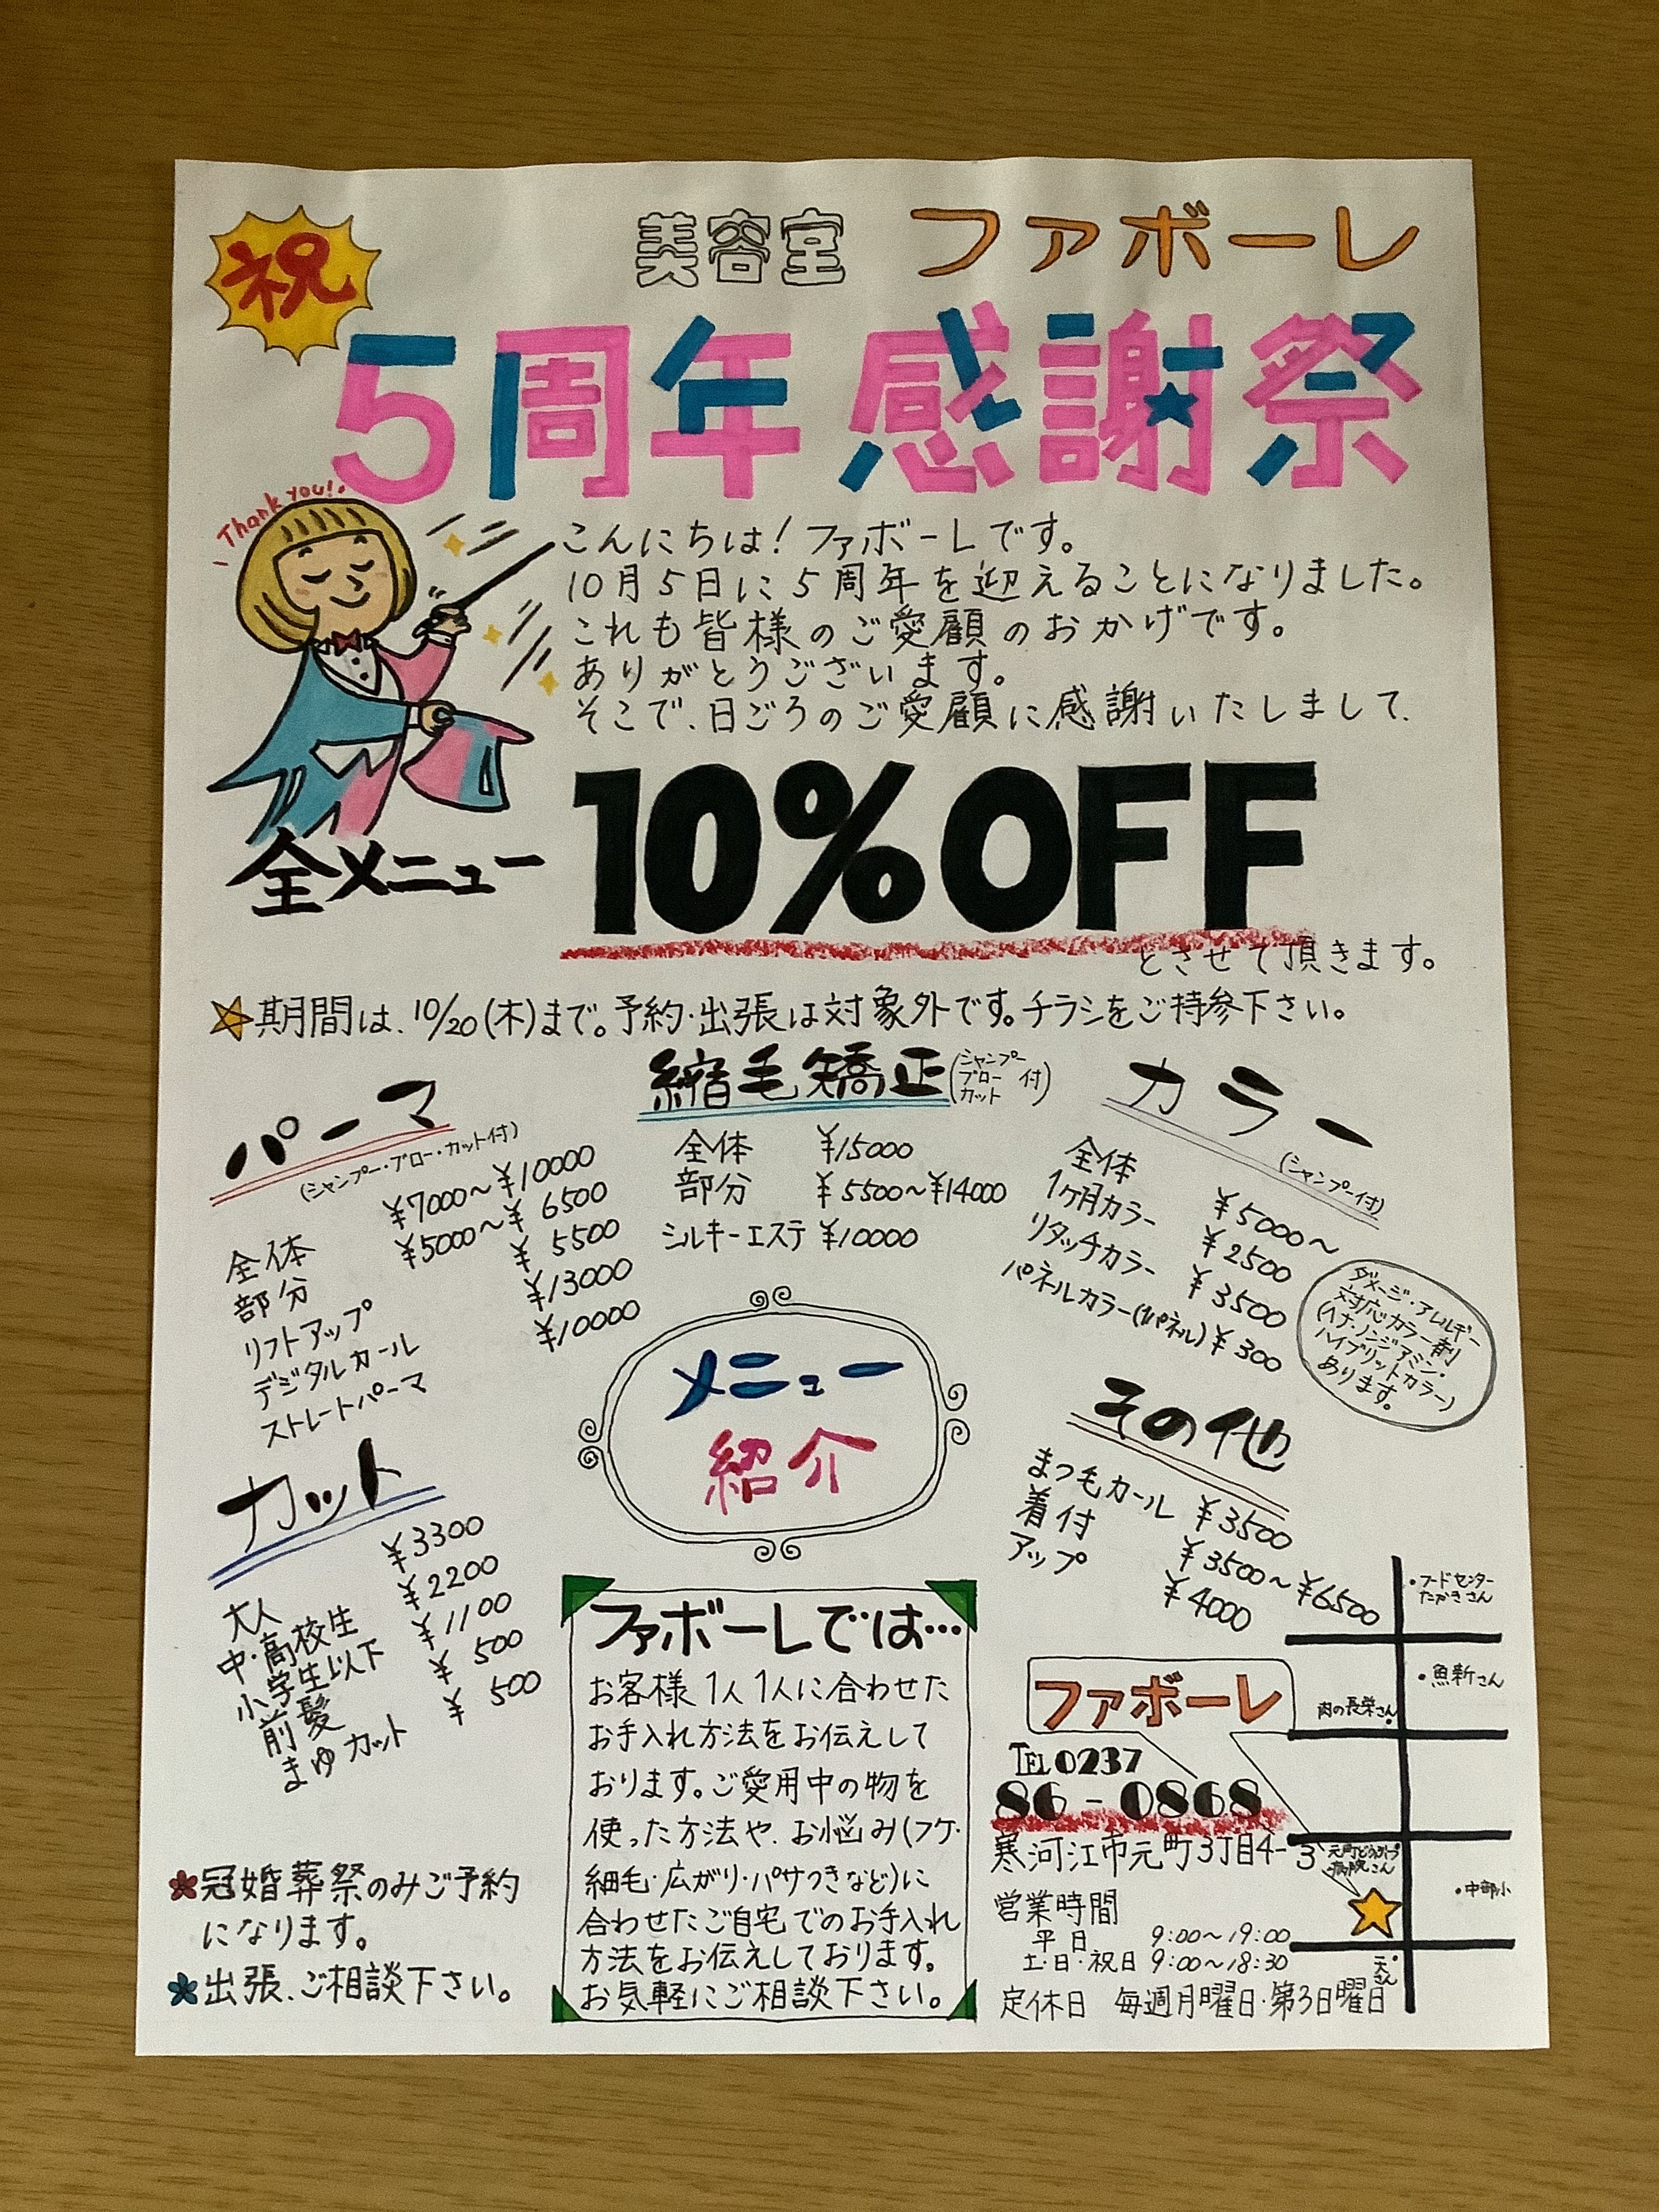 祝
美容室 ファボーレ
5周年感謝祭
Thank you!
こんにちは！ファボーレです。
10月5日に5周年を迎えることになりました。
これも皆様のご愛顧のおかげです。
ありがとうございます。
そこで、日ごろのご愛顧に感謝いたしまして、
全メニュー 10%OFF
とさせて頂きます。
☆期間は、10/20(木)まで。予約・出張は対象外です。チラシをご持参下さい。
パーマ
(シャンプー・ブロー・カット付)
全体 ¥7000～¥10000
部分 ¥5000～¥6500
リフトアップ ¥5500
デジタルカール ¥13000
ストレートパーマ ¥10000
縮毛矯正(シャンプー ブロー カット 付)
全体 ¥15000
部分 ¥5500～¥14000
シルキーエステ ¥10000
カラー
(シャンプー付)
全体 ¥5000～
1ヶ月カラー ¥2500
リタッチカラー ¥3500
パネルカラー(1パネル) ¥300
ダメージ・アレルギー
対応カラー剤
(ヘナ・ノンジアミン・
ハイブリットカラー)
あります。
メニュー
紹介
カット
大人 ¥3300
中・高校生 ¥2200
小学生以下 ¥1100
前髪 ¥500
まゆカット ¥500
その他
まつ毛カール ¥3500
着付 ¥3500～¥6500
アップ ¥4000
＊冠婚葬祭のみご予約
になります。
＊出張、ご相談下さい。
ファボーレでは…
お客様1人1人に合わせた
お手入れ方法をお伝えして
おります。ご愛用中の物を
使った方法や、お悩み(フケ・
細毛・広がり・パサつきなど)に
合わせたご自宅でのお手入れ
方法をお伝えしております。
お気軽にご相談下さい。
ファボーレ
TEL 0237
86-0868
寒河江市元町3丁目4-3
営業時間
平日 9:00～19:00
土・日・祝日 9:00～18:30
定休日 毎週月曜日・第3日曜日
・フードセンター
たかきさん
・魚新さん
肉の長栄さん・
元町どうぶつ
病院さん
・中部小